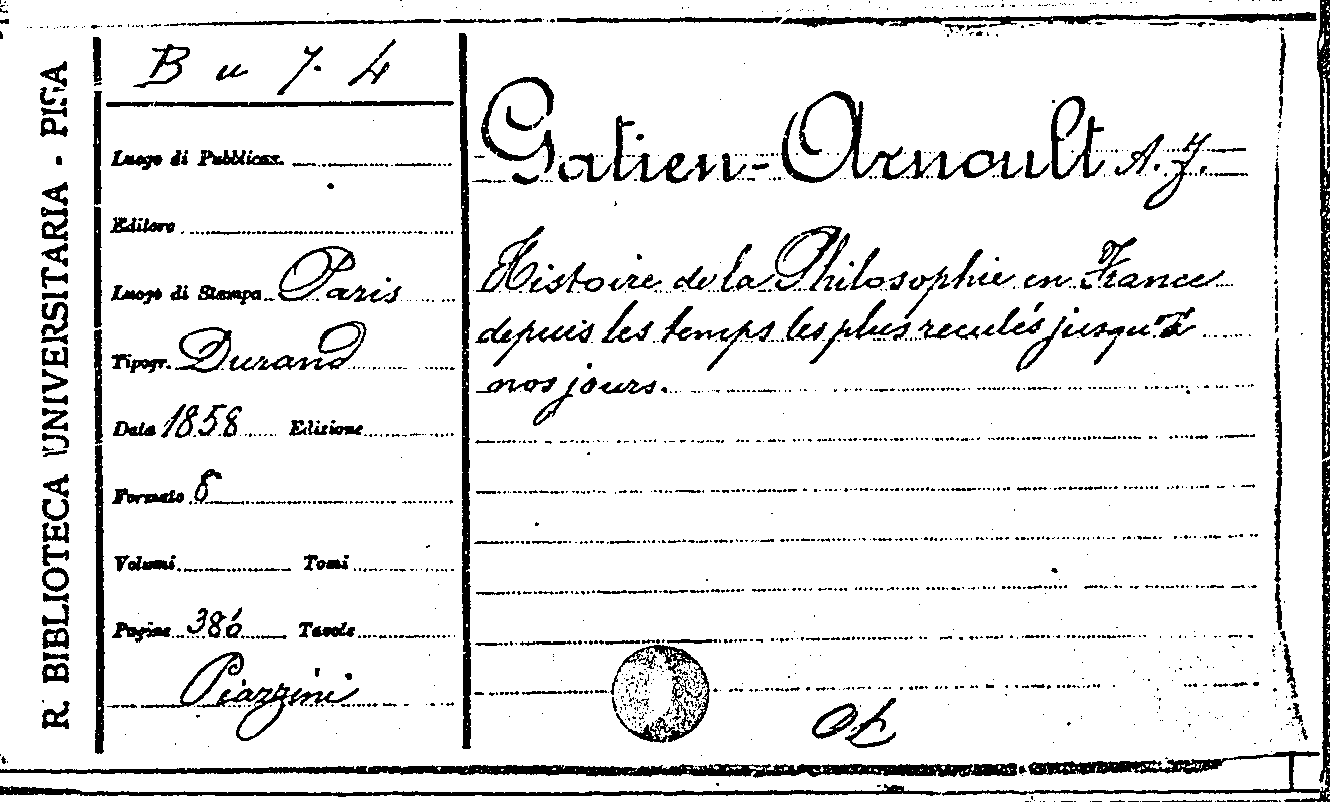 R. BIBLIOTECA UNIVERSITARIA - PISA
B u 7. 4
Luogo di Pubblicaz.
Editore
Luogo di Stampa Paris
Tipogr. Durand
Data 1858 Edizione
Formato 8
Volumi Tomi
Pagine 386 Tavole
Piazzini
Gatien-Arnoult A. J.
Histoire de la Philosophie en France
depuis les temps les plus reculés jusqu'à
nos jours.